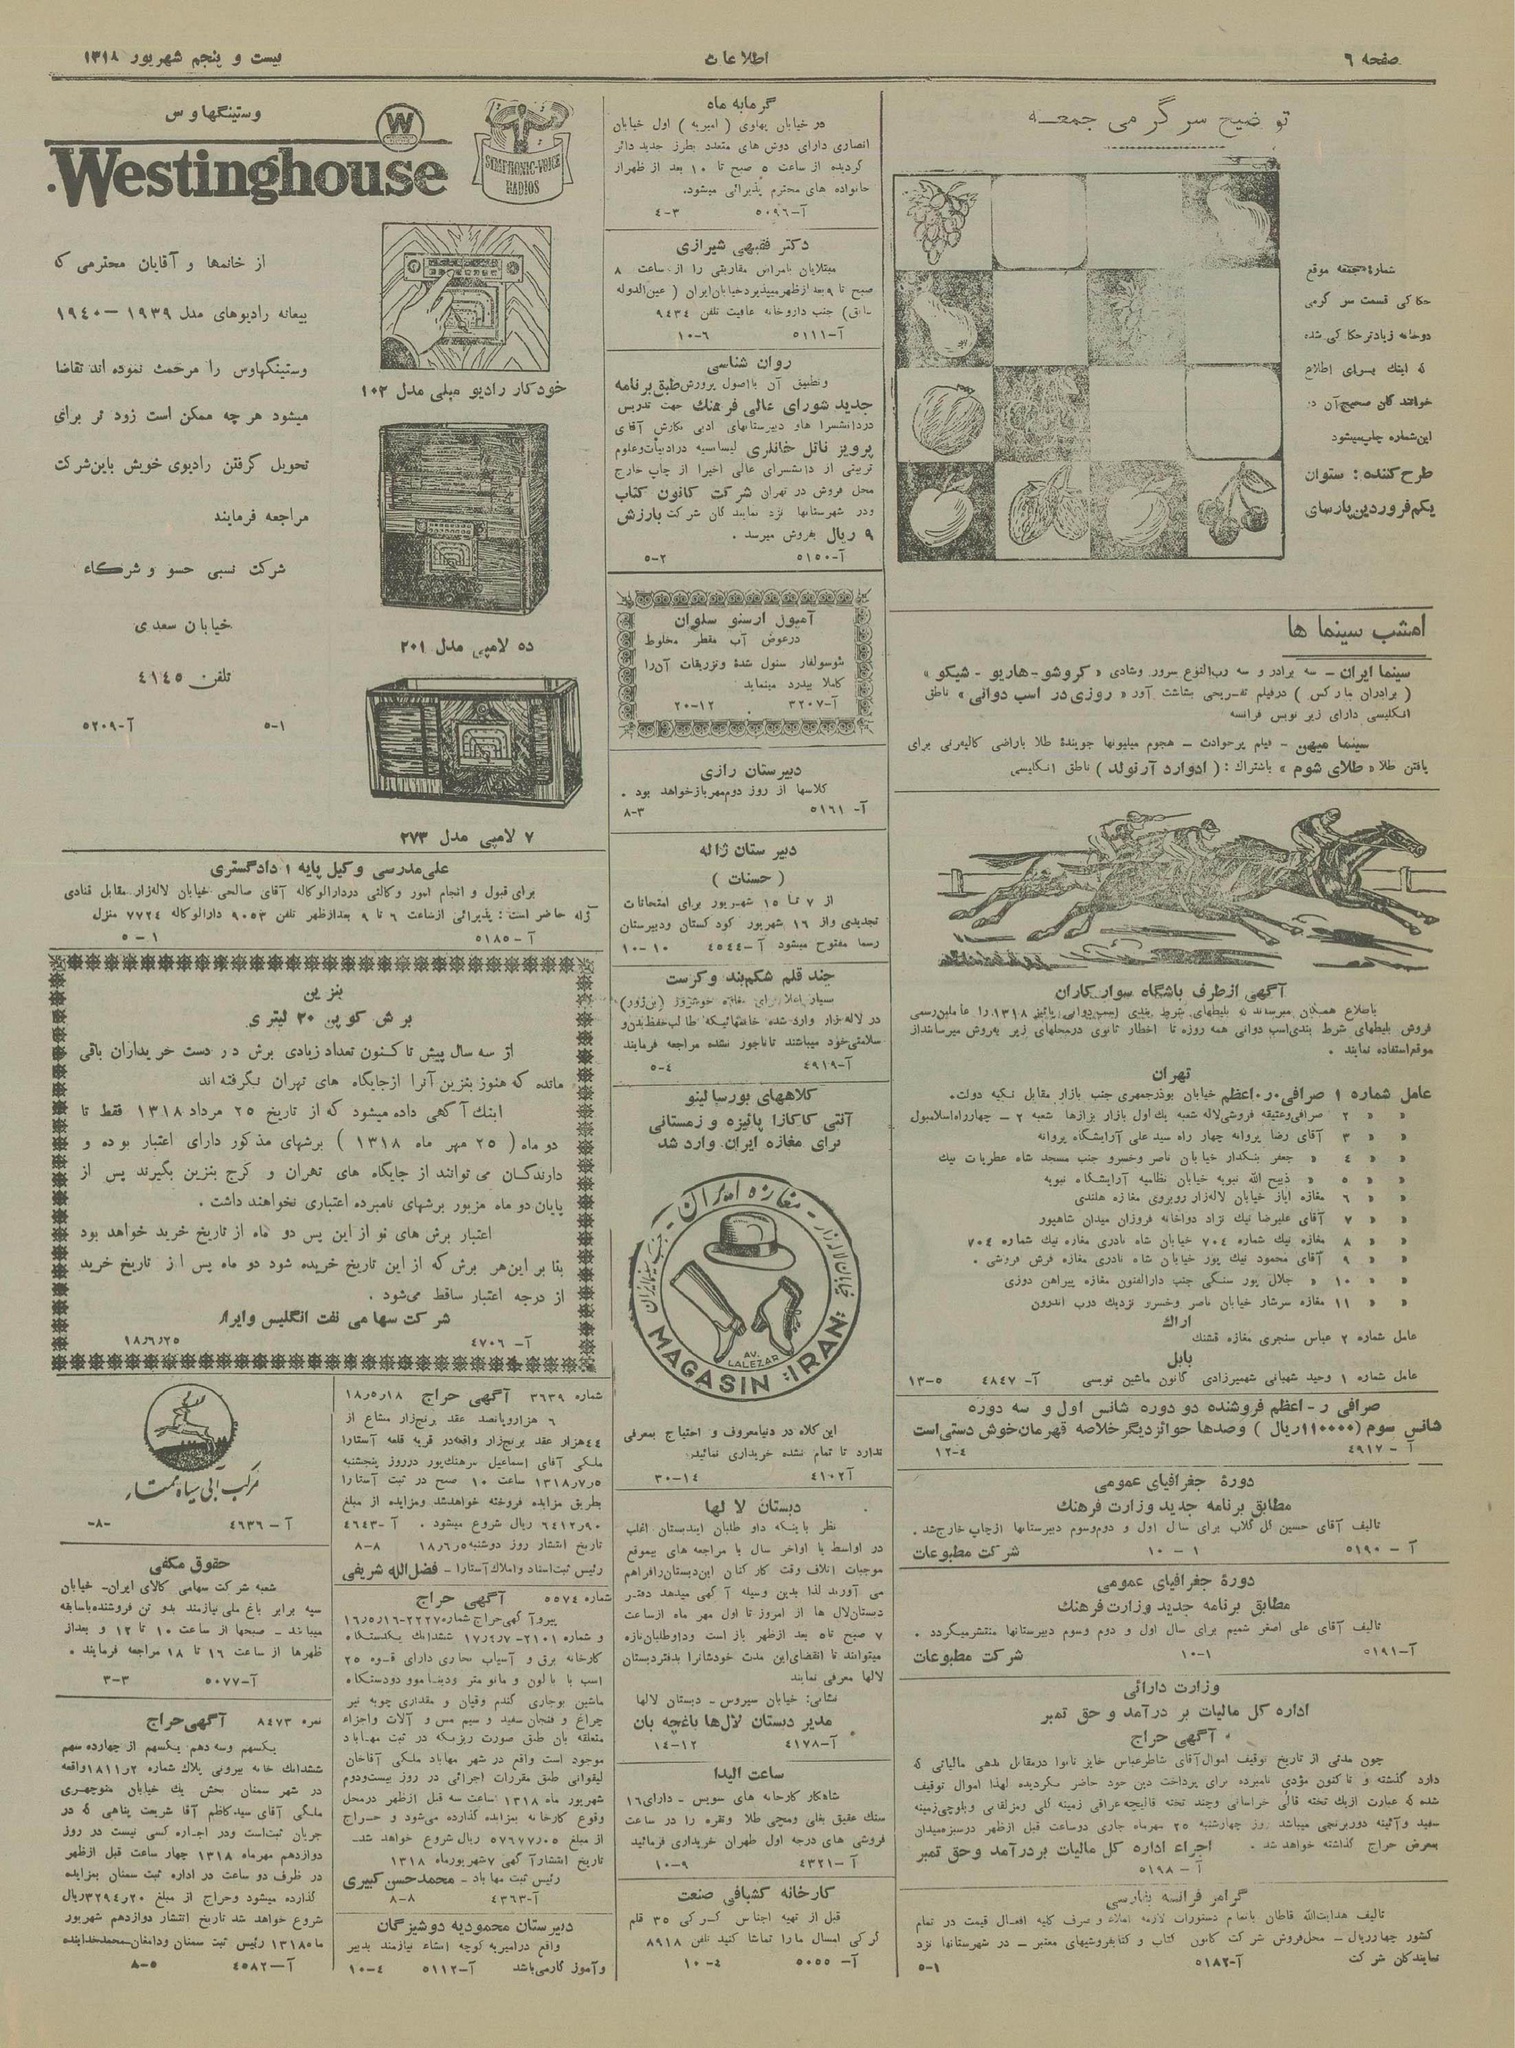 صفحه ٦
اطلاعات
بیست و پنجم شهریور ۱۳۱۸
توضیح سرگرمی جمعه
شماره جمعه موقع
حکاکی قسمت سرگرمی
دوخانه زیادتر حکاکی شده
که اینك برای اطلاع
خوانندگان صحیح آن در
این شماره چاپ میشود
طرح کننده: ستوان
یکم فروردین پارسای
امشب سینما ها
سینما ایران - سه برادر و سه رب النوع سرور وشادی « کروشو - هارپو - شیکو »
( برادران مارکس ) درفیلم تفریحی بشاشت آور « روزی در اسب دوانی » ناطق
انگلیسی دارای زیر نویس فرانسه
سینما میهن - فیلم پرحوادث - هجوم میلیونها جویندهٔ طلا باراضی کالیفرنی برای
یافتن طلا « طلای شوم » باشتراك: ( ادوارد آرنولد ) ناطق انگلیسی
آگهی از طرف باشگاه سوارکاران
باطلاع همگان میرساند که بلیطهای شرط بندی اسب دوانی پائیز ۱۳۱۸ را عاملین رسمی
فروش بلیطهای شرط بندی اسب دوانی همه روزه تا اخطار ثانوی درمحلهای زیر بفروش میرسانند از
موقع استفاده نمایند .
تهران
عامل شماره ۱ صرافی ر. اعظم خیابان بوذرجمهری جنب بازار مقابل تکیه دولت.
« « ۲ صرافی وعتیقه فروشی لاله شعبه یك اول بازار بزازها شعبه ۲ - چهارراه اسلامبول
« « ۳ آقای رضا پروانه چهار راه سید علی آرایشگاه پروانه
« « ٤ « جعفر بنکدار خیابان ناصر وخسرو جنب مسجد شاه عطریات نیك
« « ٥ « ذبیح الله نیویه خیابان نظامیه آرایشگاه نیویه
« « ٦ مغازه ایاز خیابان لاله زار روبروی مغازه هلندی
« « ۷ آقای علیرضا نیك نژاد دواخانه فروزان میدان شاهپور
« « ۸ مغازه نیك شماره ۷۰٤ خیابان شاه نادری مغازه نیك شماره ۷۰٤
« « ۹ آقای محمود نیك پور خیابان شاه نادری مغازه فرش فروشی .
« « ۱۰ « جلال پور سنگی جنب دارالفنون مغازه پیراهن دوزی
« « ۱۱ مغازه سرشار خیابان ناصر وخسرو نزدیك درب اندرون
اراك
عامل شماره ۲ عباس سنجری مغازه قشنك
بابل
عامل شماره ۱ وحید شهبانی شهمیرزادی کانون ماشین نویسی آ- ٤٨٤٧ ٥-۱۳
صرافی ر - اعظم فروشنده دو دوره شانس اول و سه دوره
شانس سوم (۱۱۰۰۰۰ ریال ) وصدها جوائز دیگر خلاصه قهرمان خوش دستی است
آ - ٤٩١٧ ٤-۱۲
دورهٔ جغرافیای عمومی
مطابق برنامه جدید وزارت فرهنك
تالیف آقای حسین گل گلاب برای سال اول و دوم وسوم دبیرستانها ازچاپ خارج شد .
آ - ٥١٩٠ ۱ - ۱۰ شرکت مطبوعات
دورهٔ جغرافیای عمومی
مطابق برنامه جدید وزارت فرهنك
تالیف آقای علی اصغر شمیم برای سال اول و دوم وسوم دبیرستانها منتشر میگردد .
آ-٥١٩١ ۱-۱۰ شرکت مطبوعات
وزارت دارائی
اداره کل مالیات بر درآمد و حق تمبر
آگهی حراج
چون مدتی از تاریخ توقیف اموال آقای شاطر عباس خابز نانوا درمقابل بدهی مالیاتی که
دارد گذشته و تا کنون مؤدی نامبرده برای پرداخت دین خود حاضر نگردیده لهذا اموال توقیف
شده که عبارت از یك تخته قالی خراسانی وچند تخته قالیچه عراقی زمینه گلی ومزلقانی وبلوچی زمینه
سفید وآئینه دوربرنجی میباشد روز چهارشنبه ۲٥ مهرماه جاری دوساعت قبل ازظهر درسبزه میدان
بمعرض حراج گذاشته خواهد شد . اجراء اداره کل مالیات بر درآمد وحق تمبر
آ - ٥١٩٨
گرامر فرانسه بپارسی
تالیف هدایت الله قاطان بانمام دستورات لازمه املاء و صرف کلیه افعال قیمت در تمام
کشور چهارریال - محل فروش شرکت کانون کتاب و کتابفروشیهای معتبر - در شهرستانها نزد
نمایندگان شرکت آ-٥١٨٢ ۱-٥
گرمابه ماه
در خیابان پهلوی ( امیریه ) اول خیابان
انصاری دارای دوش های متعدد بطرز جدید دائر
گردیده از ساعت ٥ صبح تا ۱۰ بعد از ظهر از
خانواده های محترم پذیرائی میشود.
آ-٥٠٩٦ ۳-٤
دکتر فقیهی شیرازی
مبتلایان بامراض مقاربتی را از ساعت ۸
صبح تا ۹ بعد ازظهر میپذیرد خیابان ایران ( عین الدوله
سابق ) جنب داروخانه عافیت تلفن ٩٤٣٤
آ-٥١١١ ٦-۱۰
روان شناسی
وتطبیق آن با اصول پرورش طبق برنامه
جدید شورای عالی فرهنك جهت تدریس
دردانشسرا ها و دبیرستانهای ادبی نگارش آقای
پرویز ناتل خانلری لیسانسیه درادبیات وعلوم
تربیتی از دانشسرای عالی اخیرا از چاپ خارج
محل فروش در تهران شرکت کانون کتاب
ودر شهرستانها نزد نمایندگان شرکت بارزش
۹ ریال بفروش میرسد .
آ-٥١٥٠ ۲-٥
آمپول ارسنو سلوان
درعوض آب مقطر مخلوط
تئوسولفار سئول شده وتزریقات آن را
کاملا بیدرد مینماید
آ-٣٢٠٧ ۱۲-۲۰
دبیرستان رازی
کلاسها از روز دوم مهر باز خواهد بود .
آ- ٥١٦١ ۳-۸
دبیرستان ژاله
( حسنات )
از ۷ تا ۱٥ شهریور برای امتحانات
تجدیدی و از ۱٦ شهریور کودکستان ودبیرستان
رسما مفتوح میشود آ-٤٥٤٤ ۱۰-۱۰
چند قلم شکم بند وکرست
بسیار اعلا برای مغازه خوشروز (بن ژور)
در لاله زار وارد شده خانمهائیکه طالب حفظ بدن و
سلامتی خود میباشند تا تاجور نشده مراجعه فرمایند
آ-٤٩١٩ ٤-٥
کلاههای بورسالینو
آنتی کاکازا پائیزه و زمستانی
برای مغازه ایران وارد شد
مغازه ایران
خیابان لاله زار
جنب سینما ایران
AV. LALEZAR
MAGASIN IRAN
این کلاه در دنیا معروف و احتیاج بمعرفی
ندارد تا تمام نشده خریداری نمائید.
آ-٤١٠٢ ۱٤-۳۰
دبستان لالها
نظر باینکه داو طلبان این دبستان اغلب
در اواسط یا اواخر سال با مراجعه های بیموقع
موجبات اتلاف وقت کارکنان این دبستان را فراهم
می آورند لذا بدین وسیله آگهی میدهد دفتر
دبستان لال ها از امروز تا اول مهر ماه از ساعت
۷ صبح تا ٥ بعد ازظهر باز است وداوطلبان تازه
میتوانند تا انقضای این مدت خودشانرا بدفتر دبستان
لالها معرفی نمایند
نشانی: خیابان سیروس - دبستان لالها
مدیر دبستان لال ها باغچه بان
آ-٤١٧٨ ۱۲-۱٤
ساعت الیدا
شاهکار کارخانه های سویس - دارای ۱٦
سنك عقیق بغلی ومچی طلا ونقره را در ساعت
فروشی های درجه اول طهران خریداری فرمائید
آ-٤٣٢١ ۹-۱۰
کارخانه کشبافی صنعت
قبل از تهیه اجناس کرکی ۳٥ قلم
کرکی امسال ما را تماشا کنید تلفن ۸۹۱۸
آ- ٥٠٥٥ ٤-۱۰
وستینگهاوس
W
Westinghouse
SYMPHONIC-VOICE
RADIOS
از خانمها و آقایان محترمی که
بیعانه رادیوهای مدل ۱۹۳۹-۱۹٤۰
وستینگهاوس را مرحمت نموده اند تقاضا
میشود هر چه ممکن است زود تر برای
تحویل گرفتن رادیوی خویش باین شرکت
مراجعه فرمایند
شرکت نسبی حسو و شرکاء
خیابان سعدی
تلفن ٤١٤٥
۱-٥ آ-٥٢٠٩
خودکار رادیو مبلی مدل ۱۰۳
ده لامپی مدل ۲۰۱
۷ لامپی مدل ۲۷۳
علی مدرسی وکیل پایه ۱ دادگستری
برای قبول و انجام امور وکالتی دردارالوکاله آقای صالحی خیابان لاله زار مقابل قنادی
ژاله حاضر است: پذیرائی ازساعت ٦ تا ۹ بعدازظهر تلفن ۹۰٥۳ دارالوکاله ۷۷۲٤ منزل
آ - ٥١٨٥ ۱ - ٥
بنزین
برش کوپن ۲۰ لیتری
از سه سال پیش تاکنون تعداد زیادی برش در دست خریداران باقی
مانده که هنوز بنزین آنرا ازجایگاه های تهران نگرفته اند
اینك آگهی داده میشود که از تاریخ ۲٥ مرداد ۱۳۱۸ فقط تا
دو ماه ( ۲٥ مهر ماه ۱۳۱۸ ) برشهای مذکور دارای اعتبار بوده و
دارندگان می توانند از جایگاه های تهران و کرج بنزین بگیرند پس از
پایان دو ماه مزبور برشهای نامبرده اعتباری نخواهند داشت .
اعتبار برش های نو از این پس دو ماه از تاریخ خرید خواهد بود
بنا بر این هر برش که از این تاریخ خریده شود دو ماه پس از تاریخ خرید
از درجه اعتبار ساقط می شود .
شرکت سهامی نفت انگلیس وایران
آ- ٤٧٠٦ ۱۸ر٦ر۲٥
شماره ٣٦٣٩ آگهی حراج ۱۸ر٥ر۱۸
٦ هزار وپانصد عقد برنج زار مشاع از
٤٤ هزار عقد برنج زار واقعه در قریه قلمه آستارا
ملکی آقای اسماعیل سرهنك پور درروز پنجشنبه
٥ر۷ر۱۳۱۸ ساعت ۱۰ صبح در ثبت آستارا
بطریق مزایده فروخته خواهد شد ومزایده از مبلغ
۹۰ر٦٤١٢ ریال شروع میشود . آ-٤٦٤٣
تاریخ انتشار روز دوشنبه ٥ر٦ر۱۸ ۸-۸
رئیس ثبت اسناد واملاك آستارا - فضل الله شریفی
شماره ٥٥٧٤ آگهی حراج
پیرو آگهی حراج شماره ۲۲۲۷-۱٦ر٥ر۱٦
و شماره ۲۱۰۱-۷ر۲ر۱۷ ششدانك یکدستگاه
کارخانه برق و آسیاب بخاری دارای قوه ۲٥
اسب با بالون و مانومتر ودینامو و دودستگاه
ماشین بوجاری گندم وقپان و مقداری چوبه تیر
چراغ و فنجان سفید و سیم مس و آلات واجزاء
متعلقه بان طبق صورت ریزیکه در ثبت مهاباد
موجود است واقع در شهر مهاباد ملکی آقاخان
لیقوانی طبق مقررات اجرائی در روز بیست ودوم
شهریور ماه ۱۳۱۸ ساعت سه قبل ازظهر درمحل
وقوع کارخانه بمزایده گذارده می شود و حراج
از مبلغ ٥٧٦٧٧ر٠٥ ریال شروع خواهد شد.
تاریخ انتشار آگهی ۷ شهریور ماه ۱۳۱۸
رئیس ثبت مهاباد - محمد حسن کبیری
آ-٤٣٦٣ ۸-۸
دبیرستان محمودیه دوشیزگان
واقع درامیریه کوچه استاء نیازمند بدبیر
وآموزگار می باشد آ-٥١١٢ ٤-۱۰
مرکب آبی سیاه ممتاز
آ - ٤٦٣٦ -۸-
حقوق مکفی
شعبه شرکت سهامی کالای ایران - خیابان
سپه برابر باغ ملی نیازمند بدو تن فروشنده با سابقه
میباشد - صبحها از ساعت ۱۰ تا ۱۲ و بعداز
ظهرها از ساعت ۱٦ تا ۱۸ مراجعه فرمایند .
آ-٥٠٧٧ ۳-۳
نمره ٨٤٧٣ آگهی حراج
یکسهم وسه دهم یکسهم از چهارده سهم
ششدانك خانه بیرونی پلاك شماره ۲ر۱۸۱۱ واقعه
در شهر سمنان بخش یك خیابان منوچهری
ملکی آقای سید کاظم آقا شریعت پناهی که در
جریان ثبت است ودر اجاره کسی نیست در روز
دوازدهم مهرماه ۱۳۱۸ چهار ساعت قبل ازظهر
در ظرف دو ساعت در اداره ثبت سمنان بمزایده
گذارده میشود وحراج از مبلغ ۲۰ر۳۲۹٤ ریال
شروع خواهد شد تاریخ انتشار دوازدهم شهریور
ماه ۱۳۱۸ رئیس ثبت سمنان ودامغان - محمد خدابنده
آ-٤٥٨٢ ٥-۸